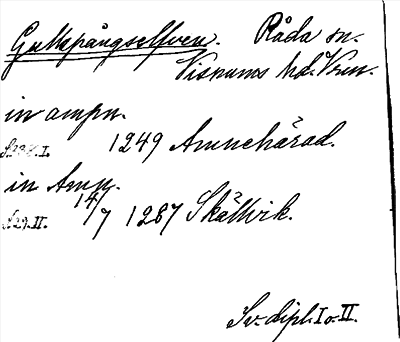 Gullspångselfven. Råda sn.
Visnums hd. Vrm.
in ampn.
S. 334. I. 1249 Amnehärad.
in Amp.
S. 29. II. 14/7 1287 Skällvik.
Sv. dipl. I o. II.